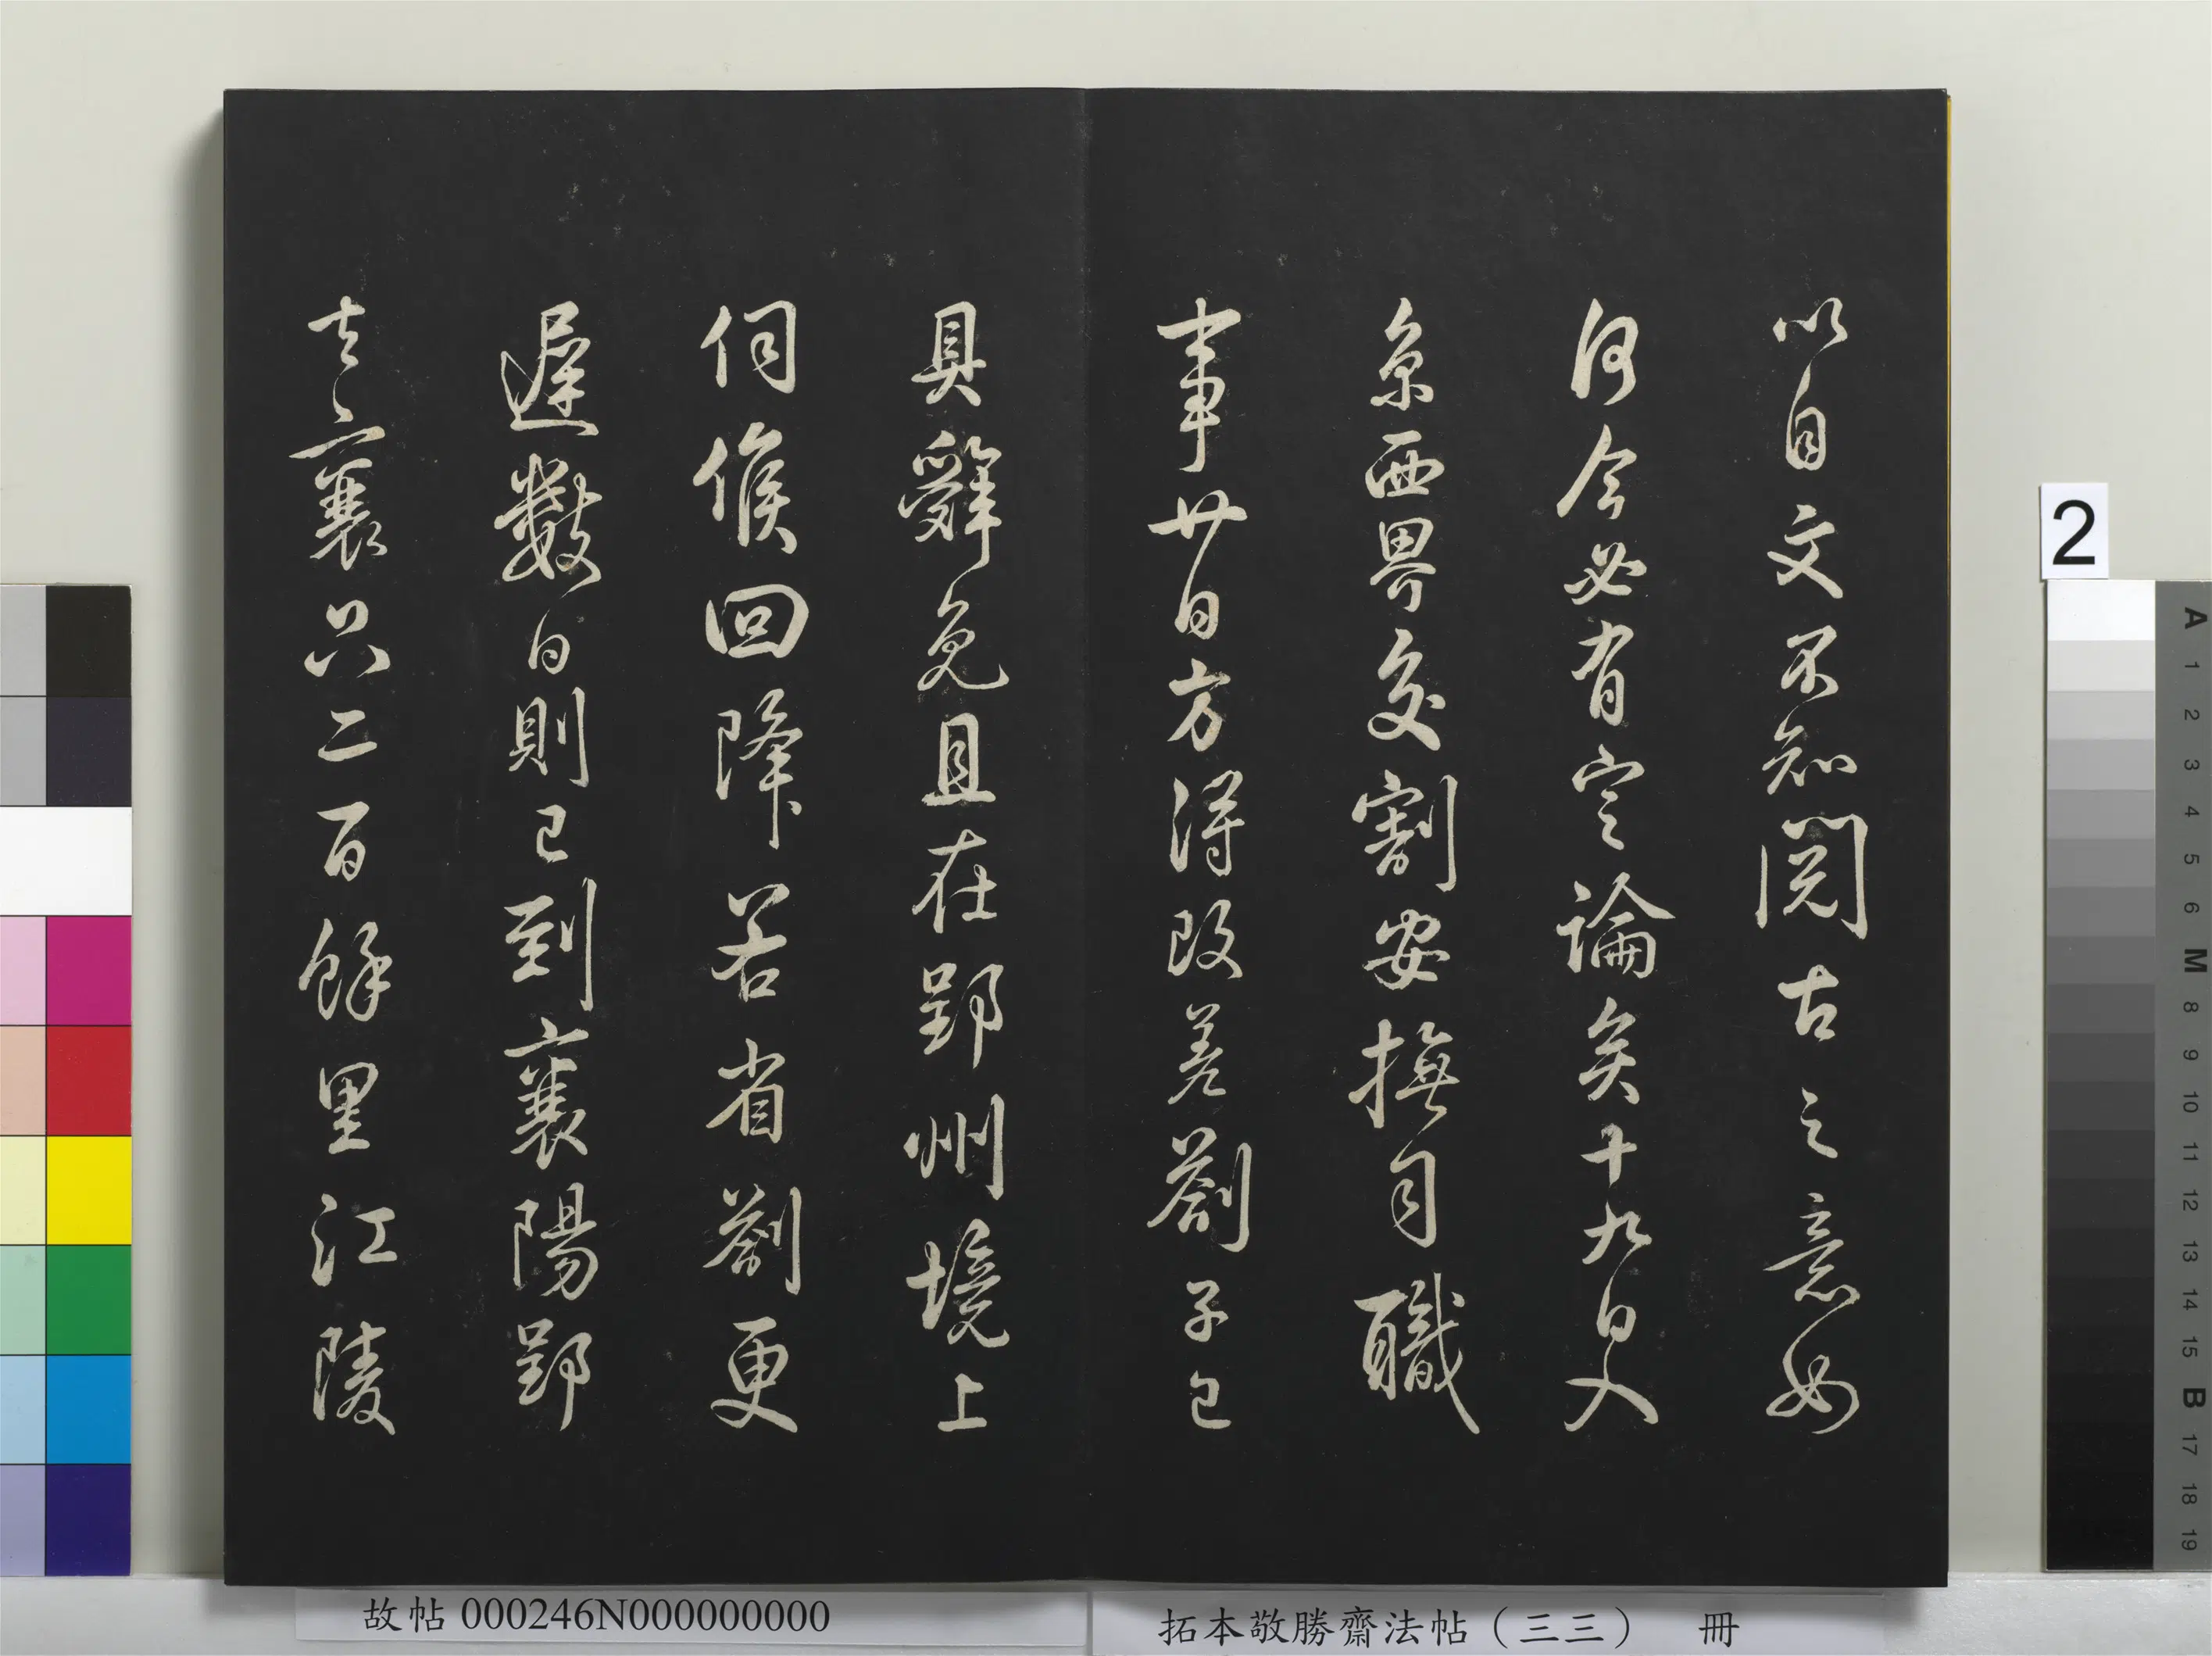 以自文不知閱古之意如
何今必有定論矣十九日入
京西界交割安撫司職
事廿日方得改差劄子已
具辭免且在郢州境上
伺候回降若省劄更
遲數日則已到襄陽郢
去襄只二百餘里江陵
故帖 000246N000000000
拓本敬勝齋法帖（三三） 冊
2
A
1
2
3
4
5
6
M
8
9
10
11
12
13
14
15
B
17
18
19